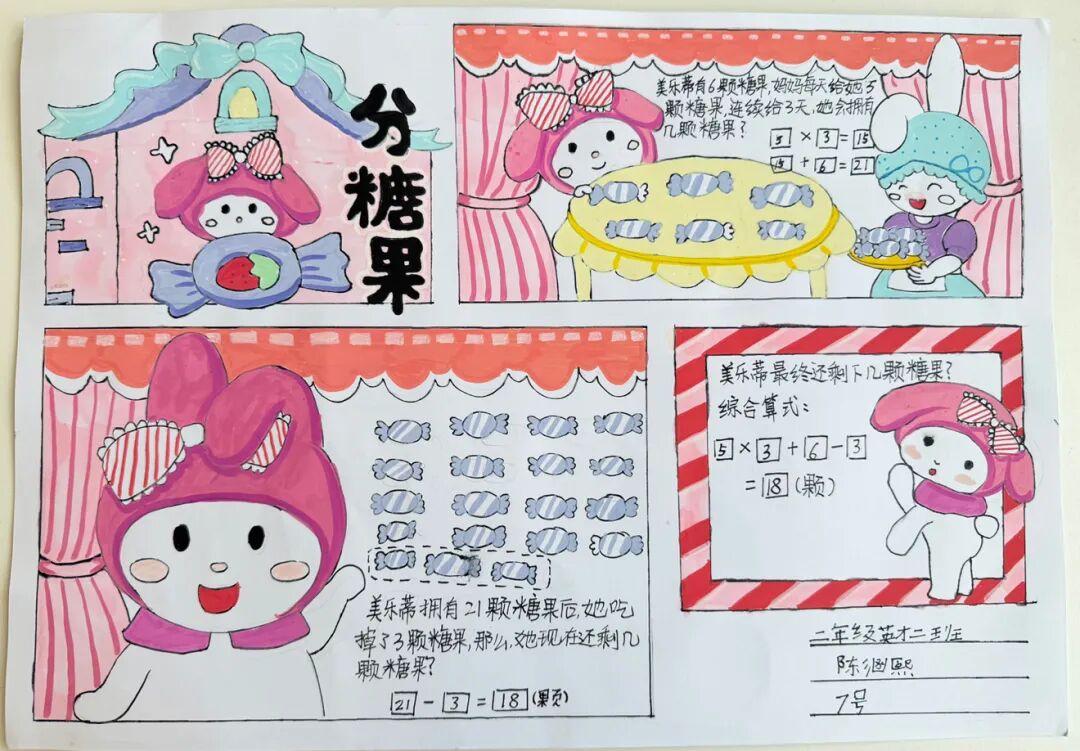 分糖果
美乐蒂有6颗糖果,妈妈每天给她5
颗糖果,连续给3天,她会拥有
几颗糖果?
5 × 3 = 15
15 + 6 = 21
美乐蒂拥有21颗糖果后,她吃
掉了3颗糖果,那么,她现在还剩几
颗糖果?
21 - 3 = 18 (颗)
美乐蒂最终还剩下几颗糖果?
综合算式:
5 × 3 + 6 - 3
= 18 (颗)
二年级英才二班
陈熙
7号